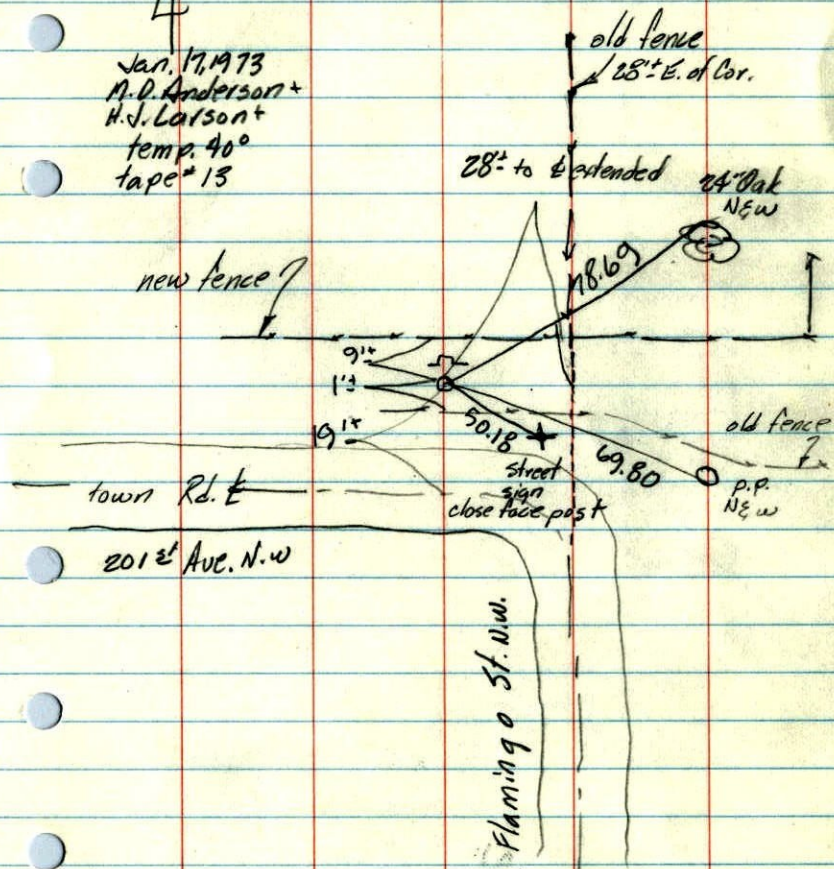 4
Jan. 17, 1973
M.D. Anderson +
H.J. Larson +
temp. 40°
tape #13
old fence
28'± E. of Cor.
28'± to ℄ extended
24" Oak
N&W
78.69
new fence
9'±
1'±
19'±
50.18
69.80
old fence
street
sign
close face post
P.P.
N&W
town Rd. ℄
201st Ave. N.W
Flamingo St. N.W.